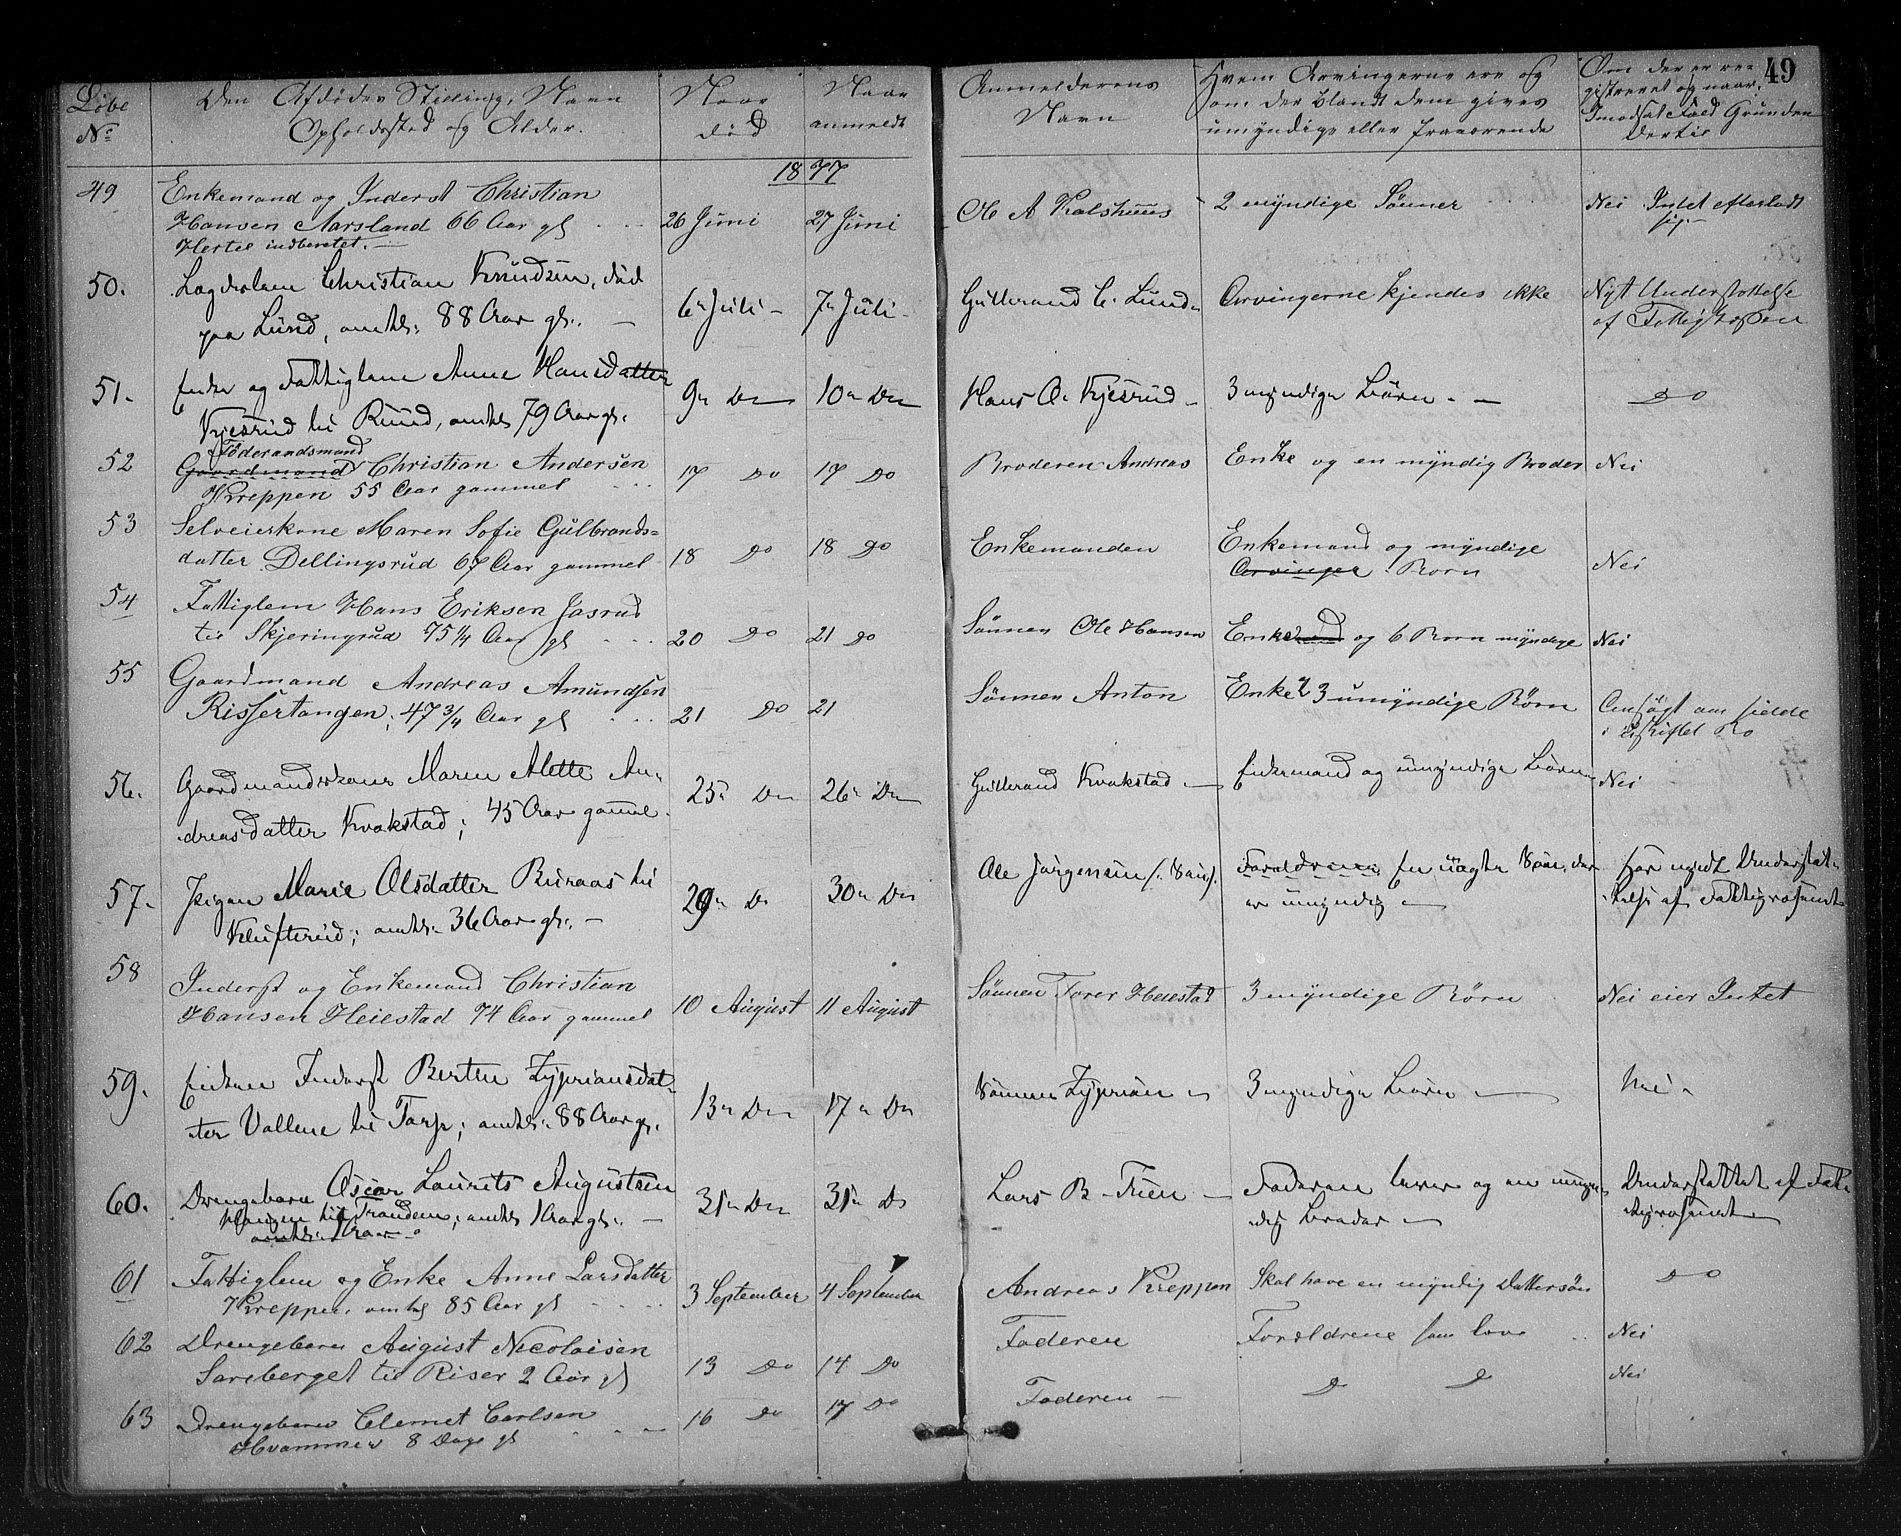 49
Løbe No
Den Afdødes Stilling, Navn
Opholdssted og Alder.
Naar
død
Naar
anmeldt
Anmelderens
Navn
Hvem Arvingerne ere og
om der blandt dem gives
umyndige eller fraværende
Om der er re-
gistreret og naar.
I modsat Fald Grunden
dertil
1877
49
Enkemand og Inderst Christian
Hansen Aarsland 66 Aar gl
Hertil indberetet.
26 Juni
27 Juni
Ole A Kalshuus
2 myndige Sønner
Nei Intet efterladt
sig
50.
Lægdslem Christian Knudsen, død
paa Lund, omtr. 88 Aar gl.
6 Juli
7 Juli
Gulbrand C. Lund
Arvingerne kjendes ikke
Nydt Understøttelse
af Fattigkassen
51.
Enke og Fattiglem Anne Hansdatter
Kjesrud til Ruud, omtr. 79 Aar gl.
9 Do
10 Do
Hans O. Kjesrud
3 myndige Børn
Do
52
Føderaadsmand
Gaardmand Christian Andersen
Kreppen 55 Aar gammel
17 Do
17 Do
Broderen Andreas
Enke og en myndig Broder
Nei
53
Selveierkone Maren Sofie Gulbrands-
datter Dellingsrud 67 Aar gammel
18 Do
18 Do
Enkemanden
Enkemand og myndige
Arvinger Børn
Nei
54
Fattiglem Hans Eriksen Jasrud
til Skjeringrud 75 1/4 Aar gl
20 Do
21 Do
Sønnen Ole Hansen
Enkemand og 6 Børn myndige
Nei
55
Gaardmand Andreas Amundsen
Rissertangen, 47 3/4 Aar gl
21 Do
21
Sønnen Anton
Enke 3 umyndige Børn
Ansøgt om sidde
i uskiftet Bo
56.
Gaardmandskone Maren Alette An-
dreasdatter Kvakstad; 45 Aar gammel
25 Do
26 Do
Gulbrand Kvakstad
Enkemand og umyndige Børn
Nei
57.
Pigen Marie Olsdatter Buraas til
Klufterud; omtr. 36 Aar gl.
29 Do
30 Do
Ole Jørgensen
Forældrene, En uægte Søn, der
er umyndig
Har nydt Understøt-
telse af Fattigvæsenet
58
Inderst og Enkemand Christian
Hansen Heiestad 74 Aar gammel
10 August
11 August
Sønnen Torer Heiestad
3 myndige Børn
Nei eier Intet
59.
Enken Inderst Berthe Zypriansdat-
ter Vollene til Torp; omtr. 88 Aar gl.
13 Do
17 Do
Sønnen Zyprian
3 myndige Børn
Nei
60.
Drengebarn Oscar Laurits Augustsen
Haugen til Trandem; omtr 1 Aar gl.
omtr. 1 Aar
31 Do
31 Do
Lars B. Tuen
Faderen lever og en umyn-
dig Broder
Understøttet af Fat-
tigvæsenet
61
Fattiglem og Enke Anne Larsdatter
Kreppen omtr 85 Aar gl
3 September
4 September
Andreas Kreppen
Skal have en myndig Dattersøn
Do
62
Drengebarn August Nicolaisen
Sarsberget til Riser 2 Aar gl
13 Do
14 Do
Faderen
Forældrene som leve
Nei
63
Drengebarn Clemet Carlsen
Hvammen 8 Dage gl
16 Do
17 Do
Faderen
D D
Nei